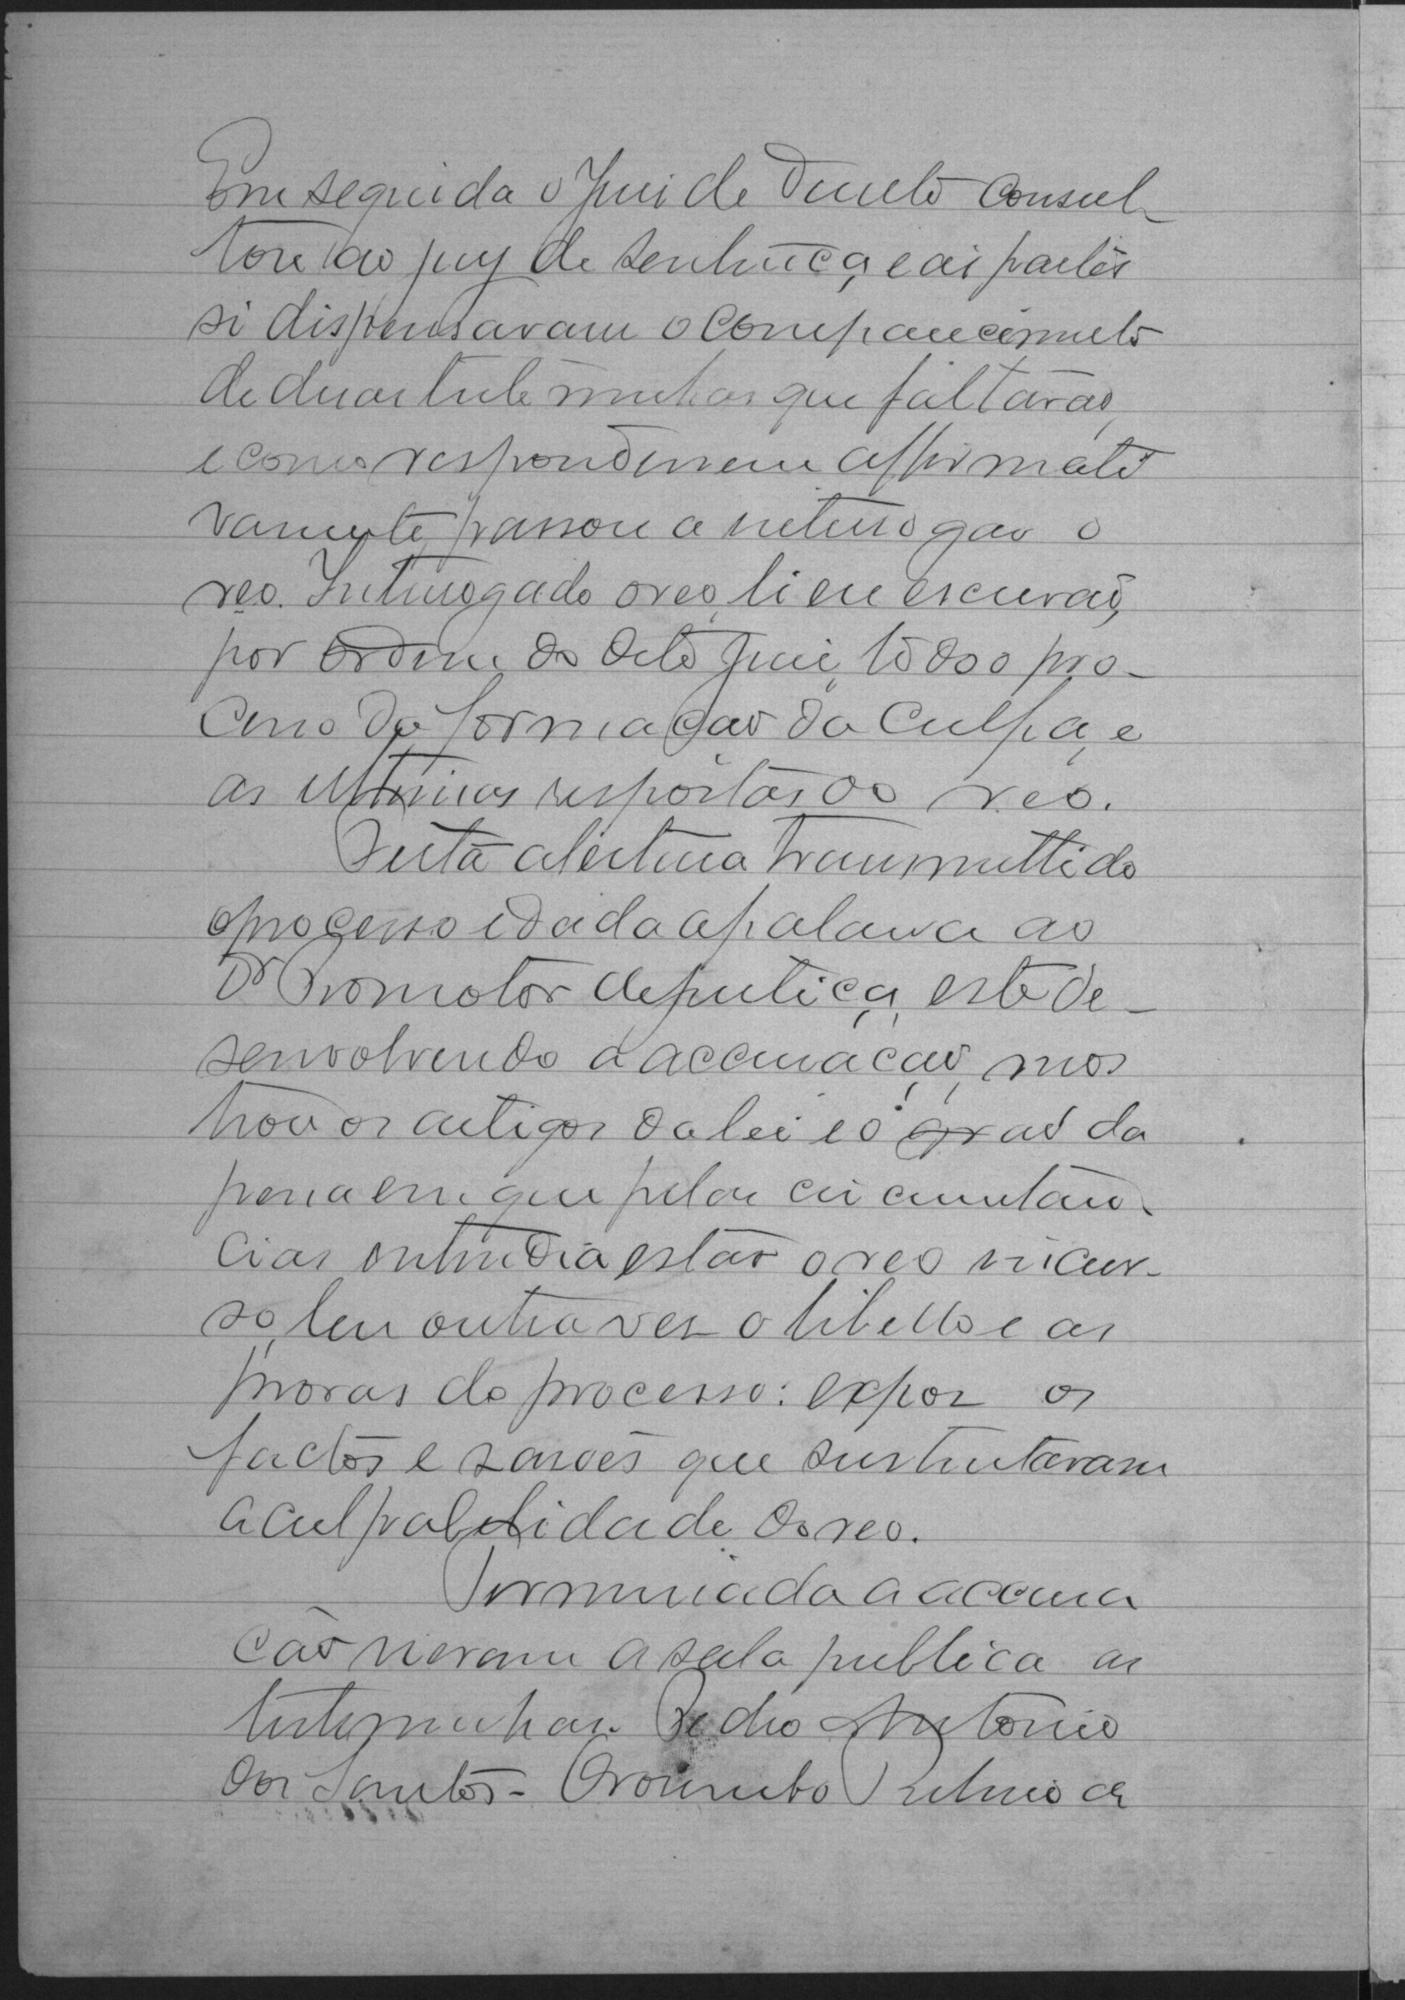 Em seguida o Juiz de Direito consul-
tou ao jury de sentença e ás partes
si dispensavam o comparecimento
de duas testemunhas que faltárão,
e como responderem affirmati
vamente, passou a interrogar o
reo. Interrogado o reo, li eu escrivão,
por ordem do dito Juiz, todo o pro-
cesso da formação da culpa, e
as ultimas respostas do reo.
Feita a leitura transmittido
o processo e dada a palavra ao
Dr Promotor de justiça, este de-
senvolvendo a accusação, mos
trou os artigos da lei e o grao da
pena em que pelas circumstan-
cias entendia estar o reo incur-
so, leu outra vez o libello e as
provas do processo: expoz os
factos e rasões que sustentavam
a culpabilidade do reo.
Terminada a accusa
ção vieram a sala publica as
testemunhas. Pedro Antonio
dos Santos -